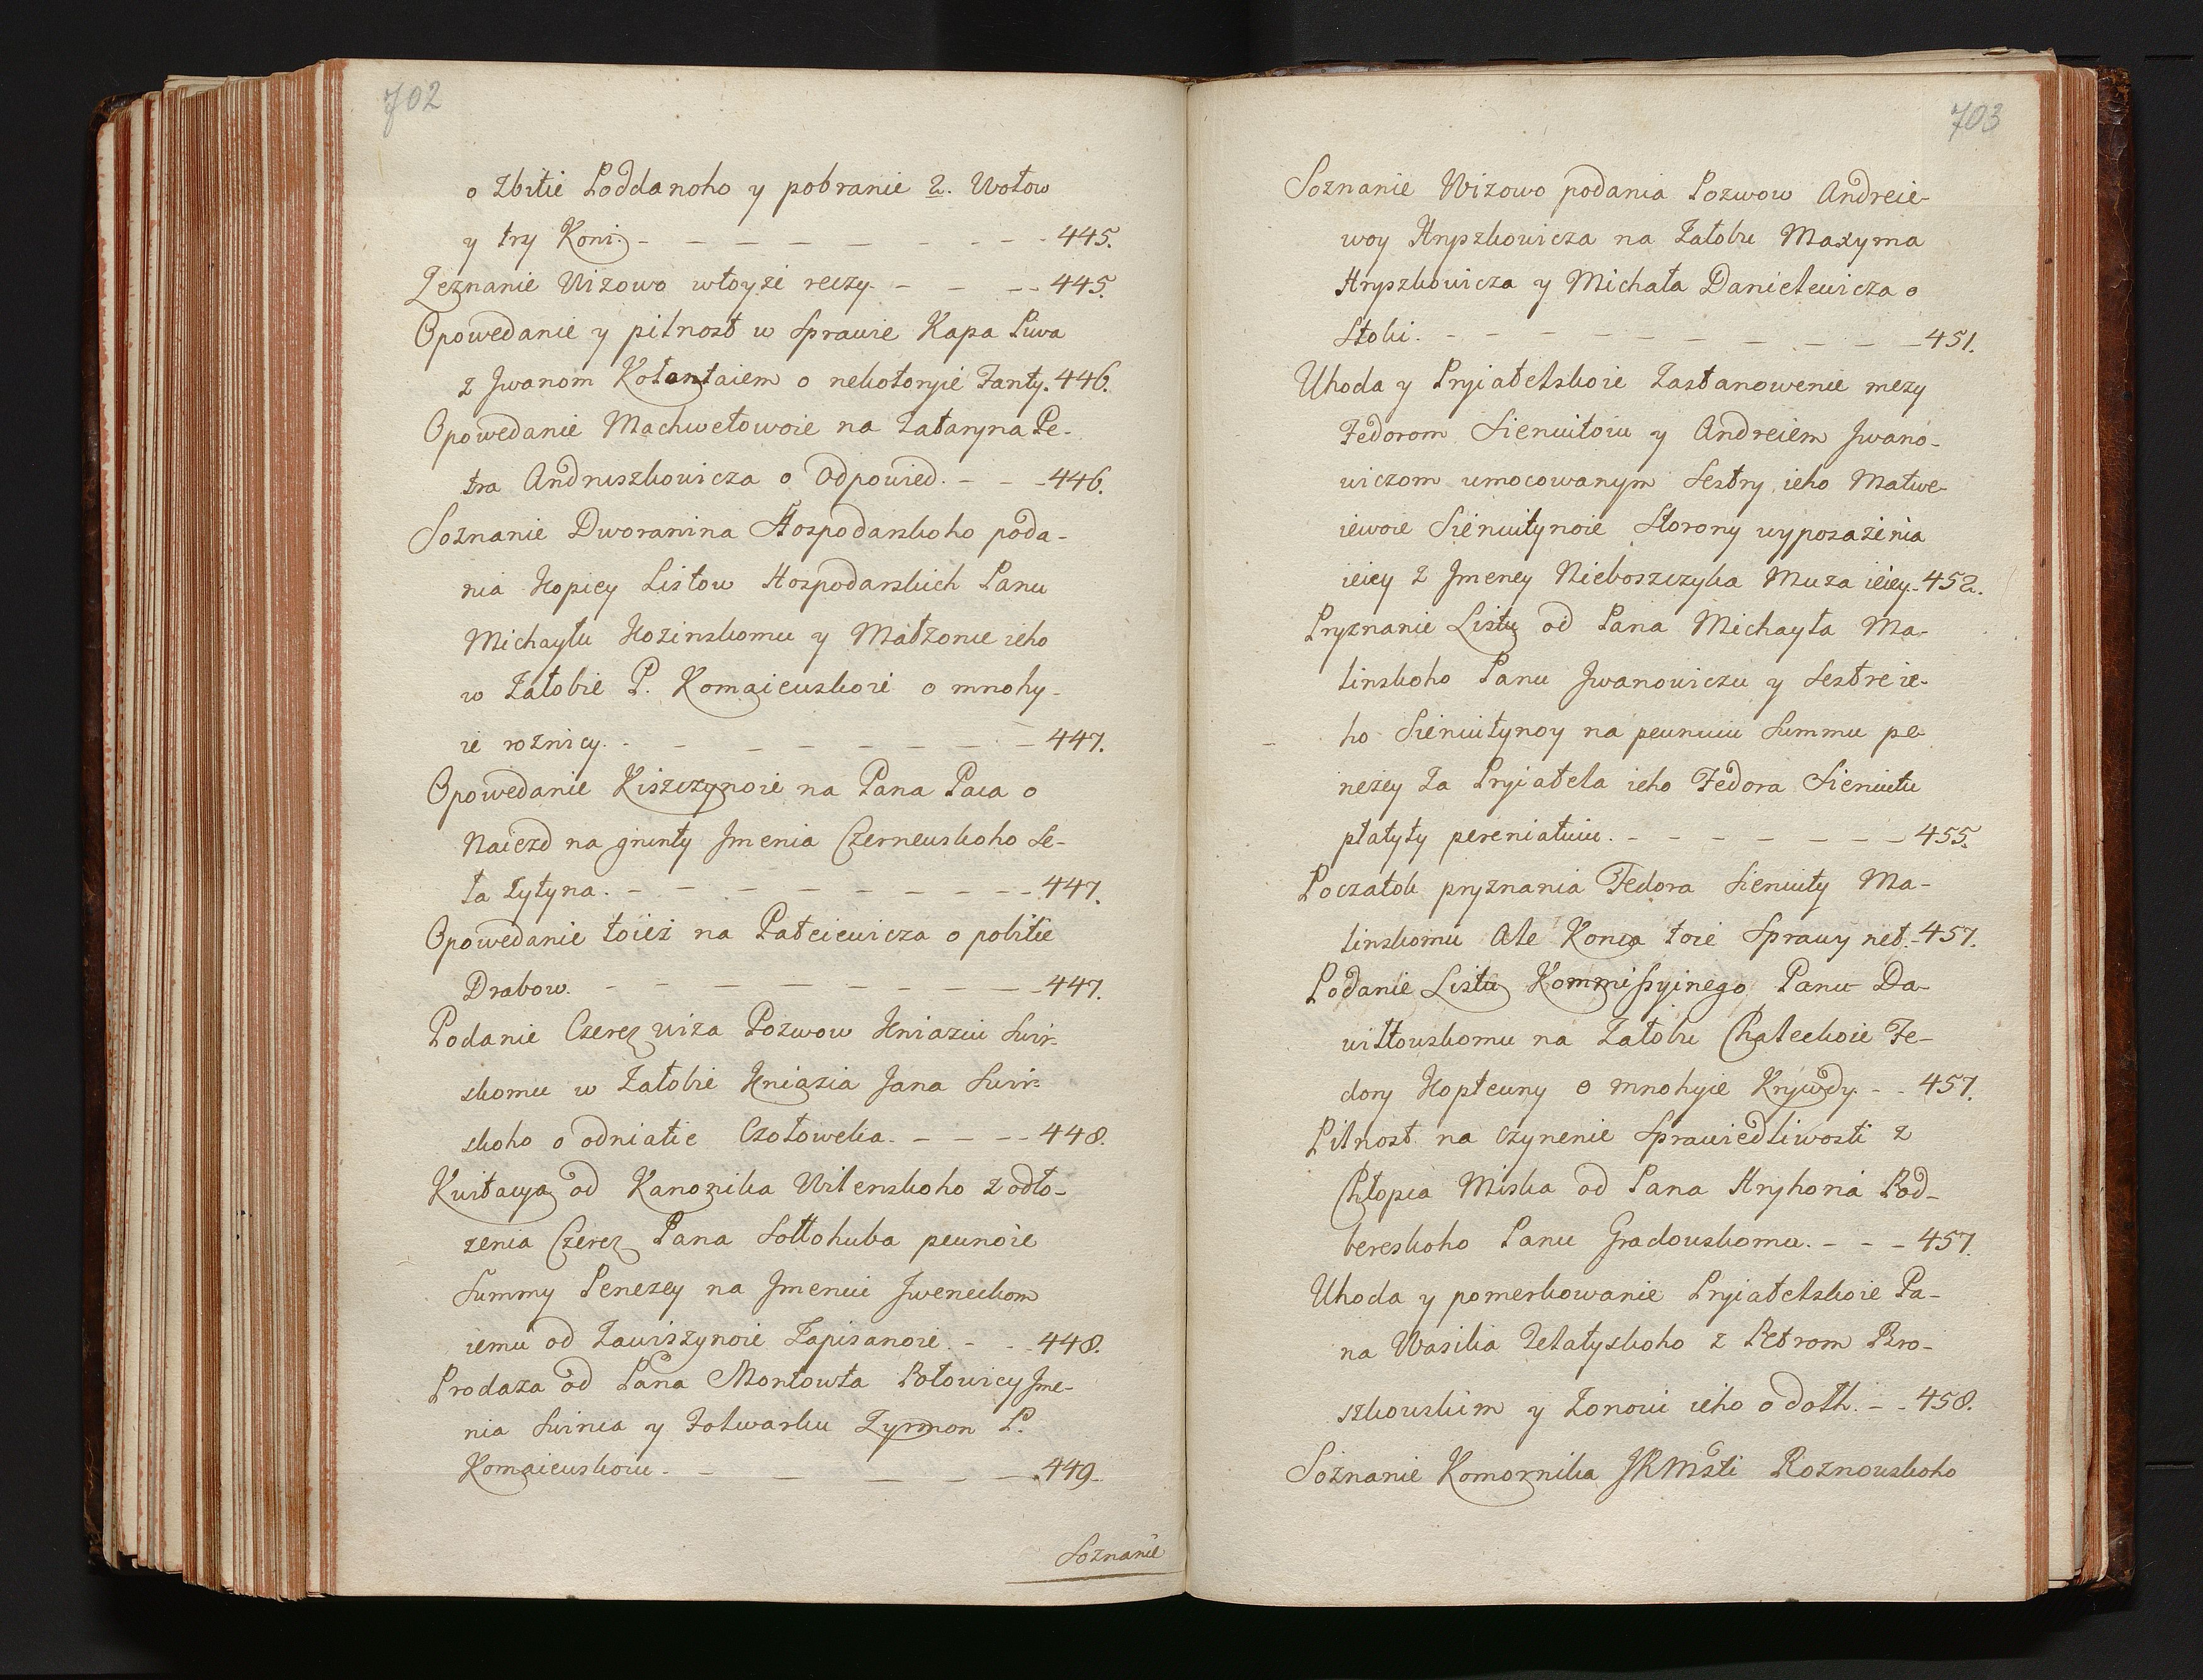 702
o Zbitie Poddanoho y pobranie 2. Wołow
y try Koni. - - - - - - - - - 445.
Zeznanie Wizowo włoyże reczy. - - - 445.
Opowedanie y pilnost w Sprawie Kapa Piwa
z Jwanom Kołantaiem o nekotoryie Fanty. 446.
Opowedanie Machwetowoie na Tataryna Pe-
tra Andruszkowicza o Odpowied. - - - 446.
Soznanie Dworanina Hospodarskoho poda-
nia Kopiey Listow Hospodarskich Panu
Michayłu Kozinskomu y Małżonce ieho
w Żałobie P. Komaiewskoie o mnohy-
ie roznicy. - - - - - - - - 447.
Opowedanie Kiszczynoie na Pana Paca o
Naiezd na grunty Jmenia Czernewskoho Se-
ła Tytyna. - - - - - - - - 447.
Opowedanie toież na Pałciewicza o pobitie
Drabow. - - - - - - - - 447.
Podanie Czerez wiża Pozwow Kniaziu Swir-
skomu w Żałobie Kniazia Jana Swir-
skoho o odniatie Czołoweka. - - - - 448.
Kwitacya od Kanonika Wilenskoho z odło-
żenia Czerez Pana Sołłohuba pewnoie
Summy Penezey na Jmeniu Jweneckom
iemu od Zawiszynoie Zapisanoie. - - - 448.
Prodaża od Pana Montowta Połowicy Jme-
nia Swirica y Folwarku Zyrmon P.
Komaiewskoiu. - - - - - - 449.
Soznanie
703
Soznanie Wizowo podania Pozwow Andreie-
woy Hryszkowicza na Żałobu Maxyma
Hryszkowicza y Michała Danielewicza o
Stoki. - - - - - - - - - 451.
Uhoda y Pryiatelskoie Zastanowenie mezy
Fedorom Sienuitoiu y Andreiem Jwano-
wiczom umocowanym Sestry ieho Matwe-
iewoie Sieniutynoie Storony wyposażenia
ieiey z Jmeney Nieboszczyka Muża ieiey. 452.
Pryznanie Listu od Pana Michayła Ma-
linskoho Panu Jwanowiczu y Sestre ie-
ho Sieniutynoy na pewnuiu Summu pe-
neżey za Pryiatela ieho Fedora Sieniutu
płatyty pereniatuiu. - - - - - - 455.
Poczatok pryznania Fedora Sieniuty Ma-
linskomu Ale Konca toie Sprawy net. - 457.
Podanie Listu Kommissyinego Panu Da-
wiłłowskomu na Żałobu Chaleckoie Fe-
dory Kopteuny o mnohyie Krywdy. - - 457.
Pilnost na czynenie Sprawiedliwosti z
Chłopca Miska od Pana Hryhoria Pod-
bereskoho Panu Gradowskomu. - - - 457.
Uhoda y pomerkowanie Pryiatelskoie Pa-
na Wasilia Żełatyskoho z Petrom Pro-
szkowskim y Żonoiu ieho o dołh. - - 458.
Soznanie Komornika JKMsti Roznowskoho